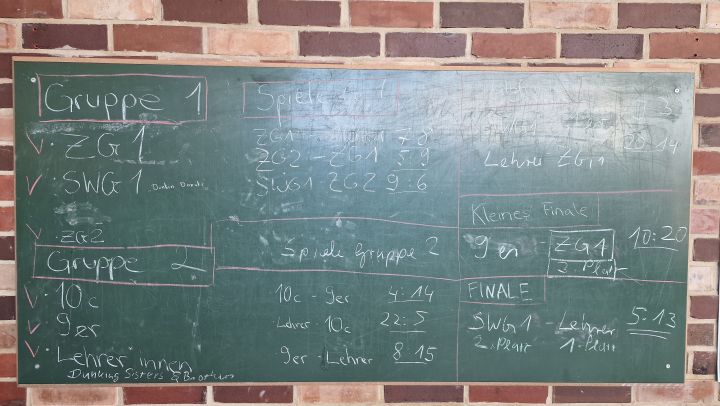 Gruppe 1
ZG1
SWG1
ZG2
Gruppe 2
10c
9er
Lehrer*innen
Dunking Sisters & Brothers
Spiele 1
ZG1 - 7:8
ZG2 - ZG1 5:9
SWG1 ZG2 9:6
Spiele Gruppe 2
10c - 9er 4:14
Lehrer - 10c 22:5
9er - Lehrer 8:15
Lehrer ZG1
Kleines Finale
9er - ZG1 10:20
3. Platz
FINALE
SWG1 - Lehrer 5:13
2. Platz 1. Platz